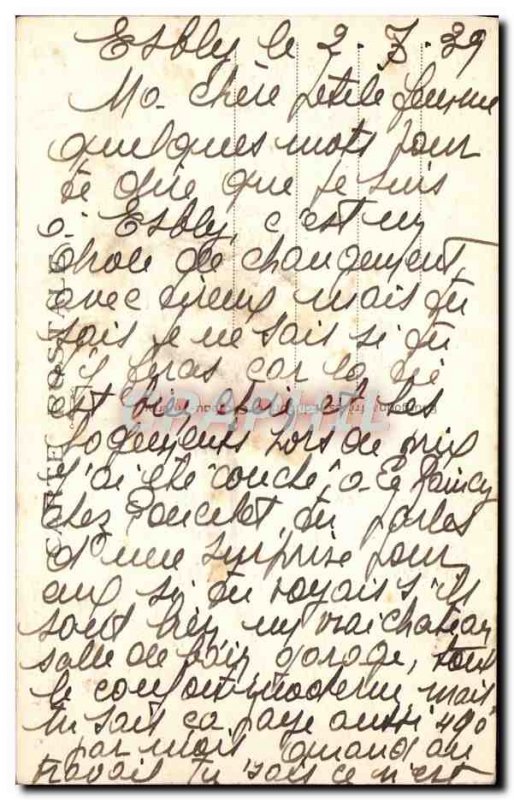 Esbly le 2.7.39
Ma chère petite femme
quelques mots pour
te dire que je suis
à Esbly, c'est un
drole de changement,
avec mais tu
sais je ne sais si tu
t'y feras car la vie
est bien chère et les
logements hors de prix
j'ai été couché à Le Raincy
chez Poucelet, tu parles
d'une surprise pour
eux si tu voyais s'ils
sont bien un vrai chateau
salle de bain garage, tout
le confort moderne mais
tu sais ça paye aussi 490
par mois quand au
travail tu sais ce n'est
CARTE POSTALE
DELCAMPE